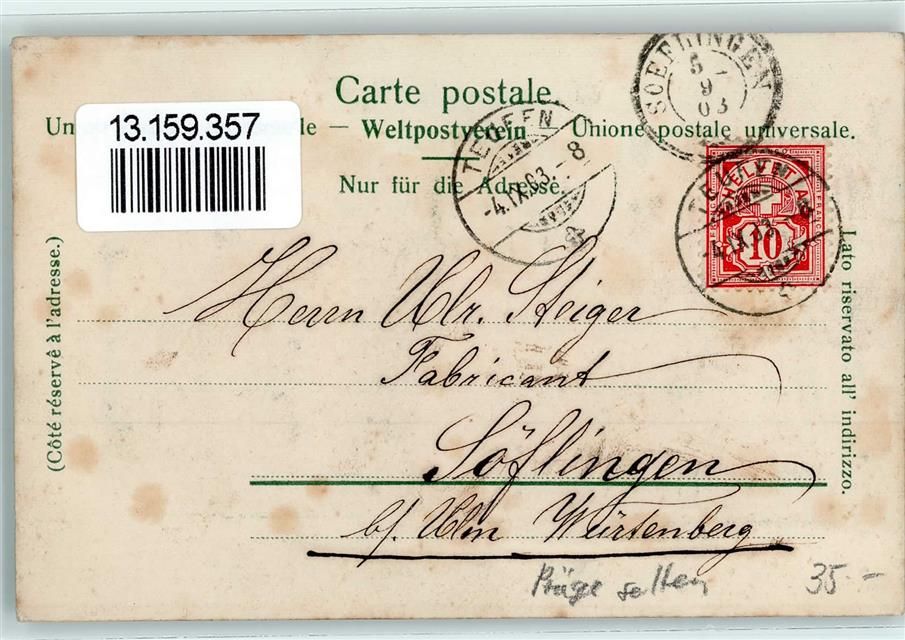 Carte postale.
13.159.357
Un le — Weltpostverein Unione postale universale.
Nur für die Adresse.
(Côté réservé à l'adresse.)
Lato riservato all' indirizzo.
SOEFLINGEN
5 -
9
03
TEUFEN
-4.IX.03.-8
HELVETIA
10
TEUFEN
-4.IX.03.-8
Herrn Ulr. Steiger
Fabricant
Söflingen
b/ Ulm Würtenberg
Präge selten 35 -